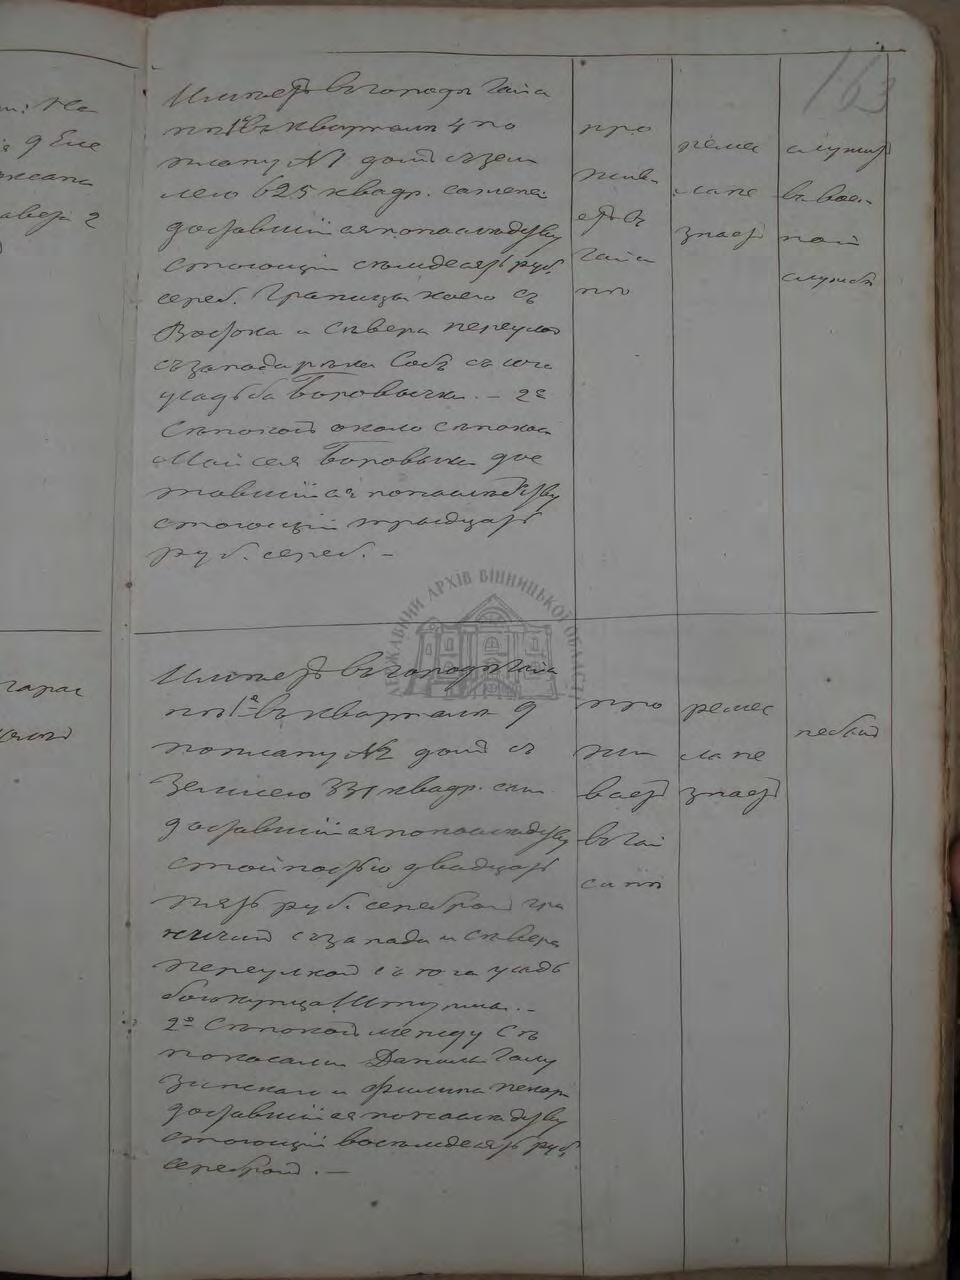 163
Имѣетъ въ городѣ Гайси
нѣ 1й въ кварталѣ 4 по
плану №1 домъ съ зем
лею 625 квадр. сажень
доставшійся по наслѣдству
стоющій семдесятъ руб.
сереб. Границы коего съ
Востока и сѣвера переулок
съ запада рѣка Собъ съ юга
усадьба Боровыка. — 2е
Сѣнокосъ около сѣнокоса
Мойсея Боровыка дос
тавшійся по наслѣдству
стоющій тридцать
руб. сереб. —
про
жив
етъ въ
Гайси
нѣ
ремес
ла не
знаетъ
служитъ
въ воен
ной
службѣ
Имѣетъ въ городѣ Гайси
нѣ 1е въ кварталѣ 9
по плану №2 домъ съ
землею 331 квадр. саж.
доставшійся по наслѣдству
стоимостью двадцать
пять руб. серебромъ гра
ничитъ съ запада и сѣвера
переулкомъ съ юга усадь
бою
2е Сѣнокосъ между сѣ
нокосами Данила Голу
зинскаго и Филипа
доставшійся по наслѣдству
стоющій восемдесятъ руб.
серебромъ. —
про
жи
ваетъ
въ Гай
синѣ
ремес
ла не
знаетъ
небылъ
ДЕРЖАВНИЙ АРХІВ ВІННИЦЬКОЇ ОБЛАСТІ